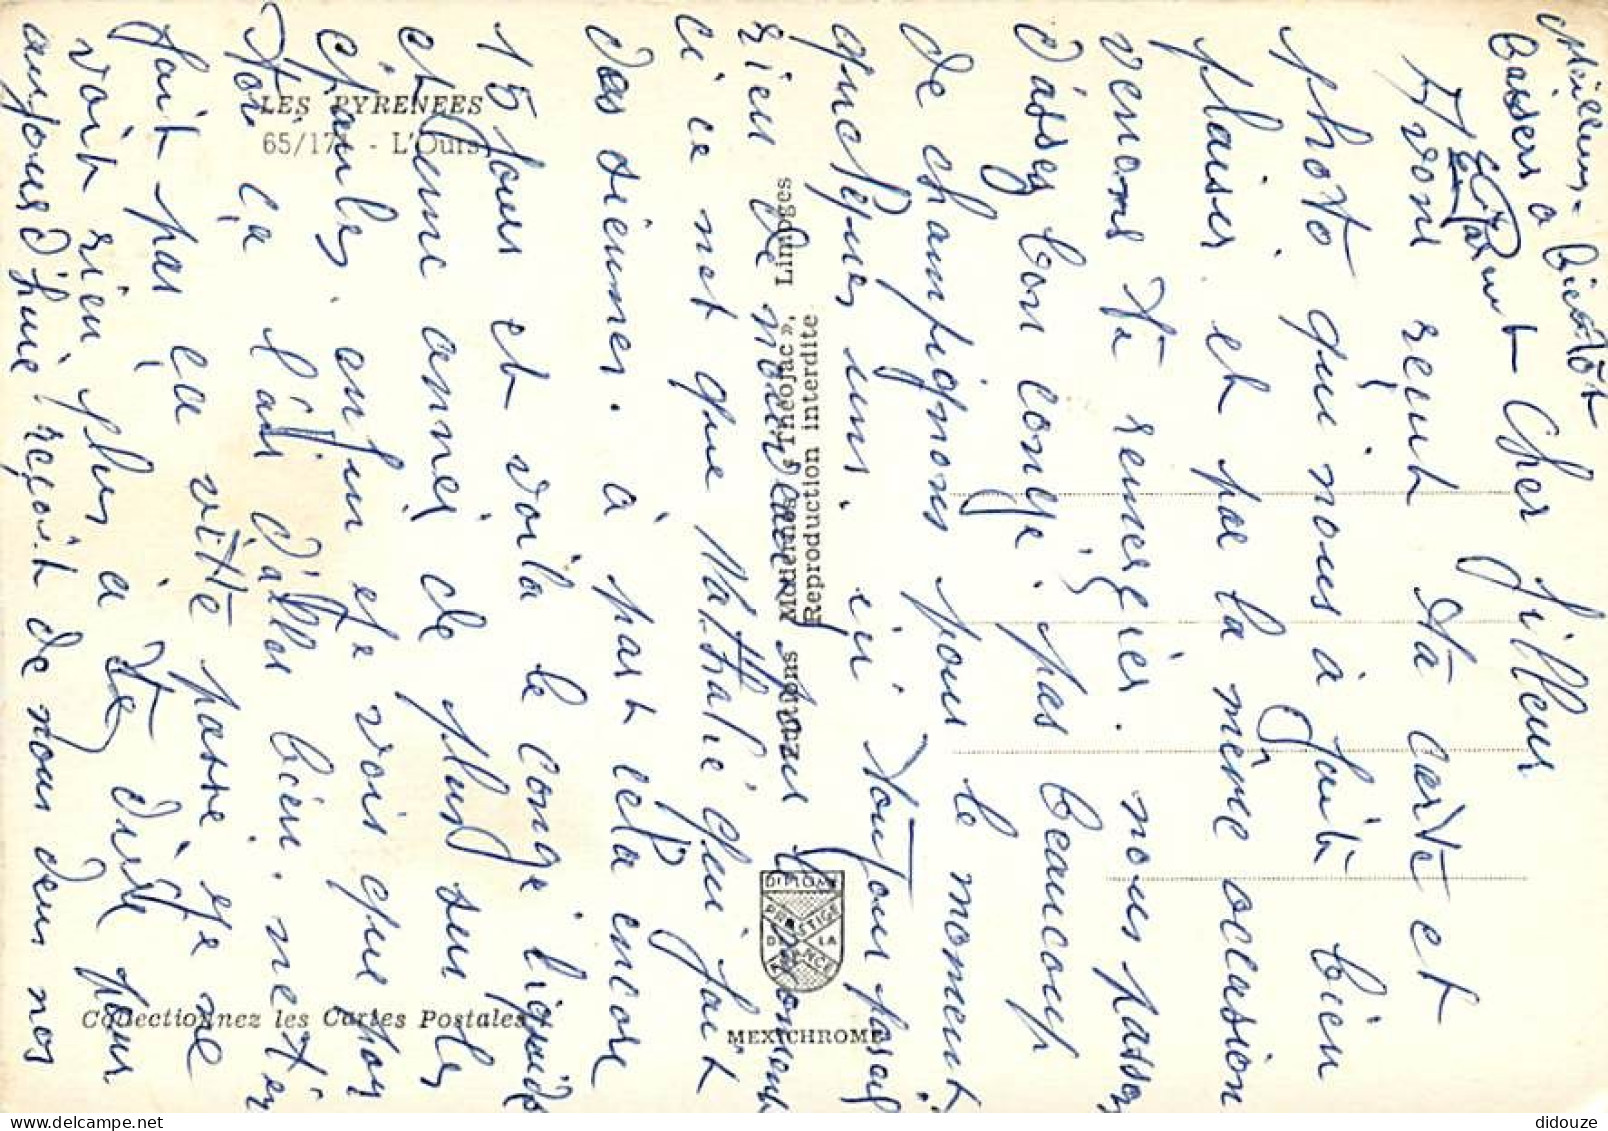 LES PYRENEES
65/17 - L'Ours
Cher filleul
Avons reçut ta carte et
photo qui nous à fait bien
plaisir. et par la même occasion
venons te remercier. nous passons
assez bon congé. pas beaucoup
de champignons pour le moment
quelques uns. ici toujours pareil
rien de nouveau pour le moment
ci ce net que Nathalie qui fait
des siennes. à part cela encore
15 jours et voila le congé liquidé
et une année de plus sur les
épaules. enfin je vois que toi
tou ça l'air d'aller bien. net
fait pas ça vitte passe je ne
voit rien plus à te dire pour
aujourd'huie reçoit de nous deux nos
Meilleurs
baisers a bientôt
Editions Modernes « Théojac », Limoges
Reproduction interdite
DIPLOME
PRESTIGE
DE LA
FRANCE
Collectionnez les Cartes Postales
MEXICHROME
didouze